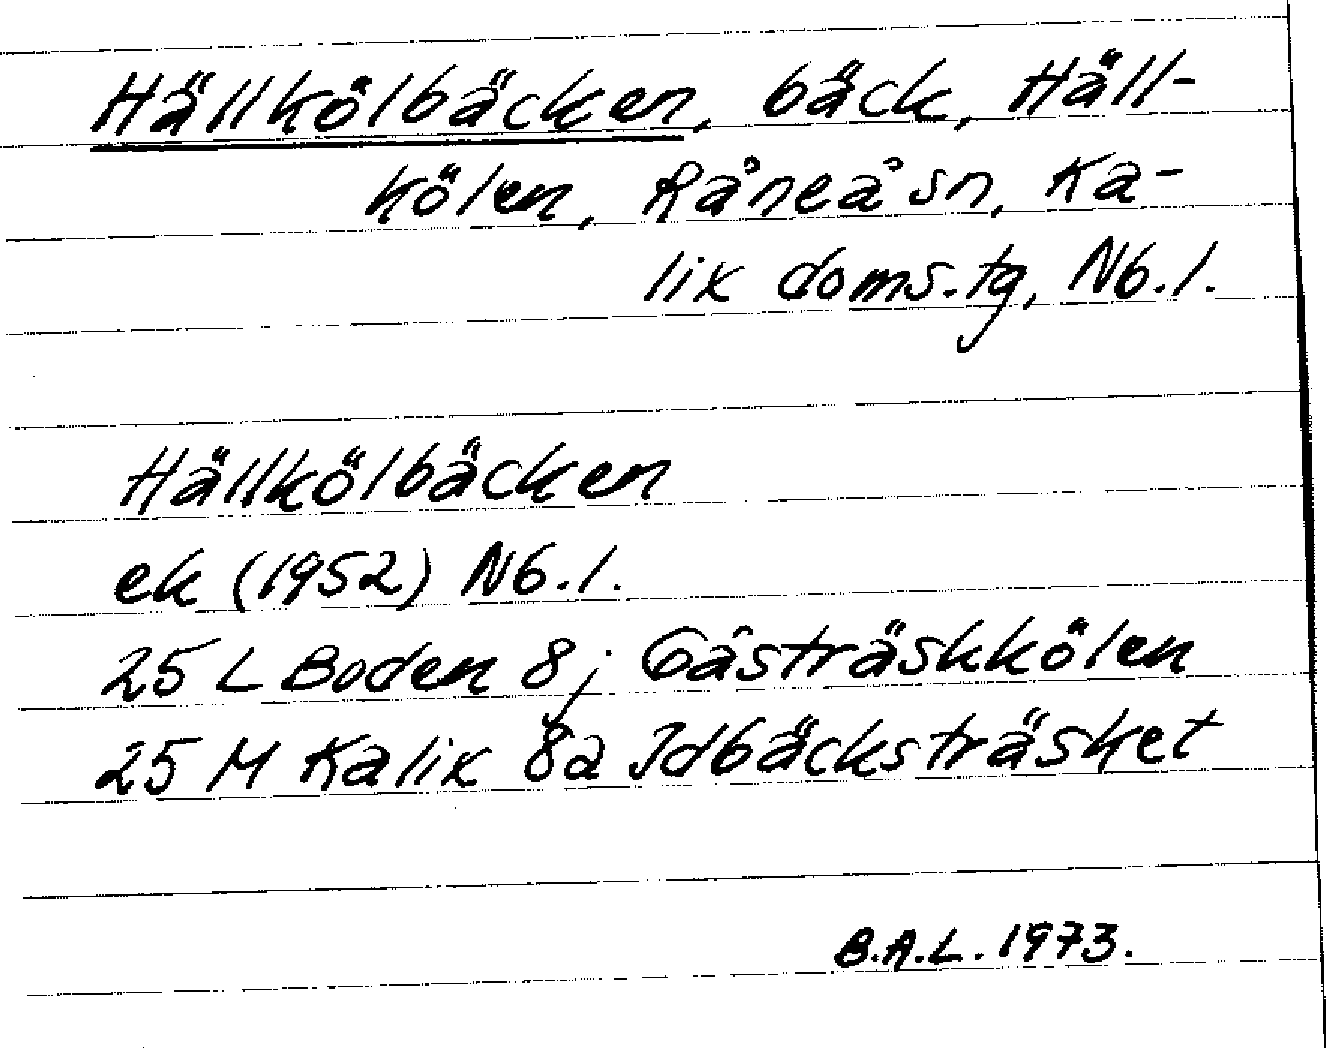 Hällkölbäcken, bäck, Häll-
kölen, Råneå sn, Ka-
lix doms.tg, Nb.l.
Hällkölbäcken
ek (1952) Nb.l.
25 L Boden 8j Gåsträskkölen
25 M Kalix 8a Idbäcksträsket
B.A.L. 1973.